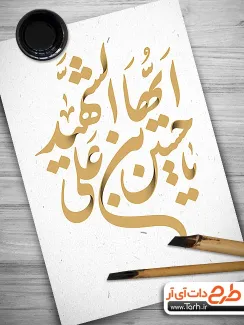 ایّها الشهید
یا حسین بن علی
طرح دات آی آر
www.Tarh.ir